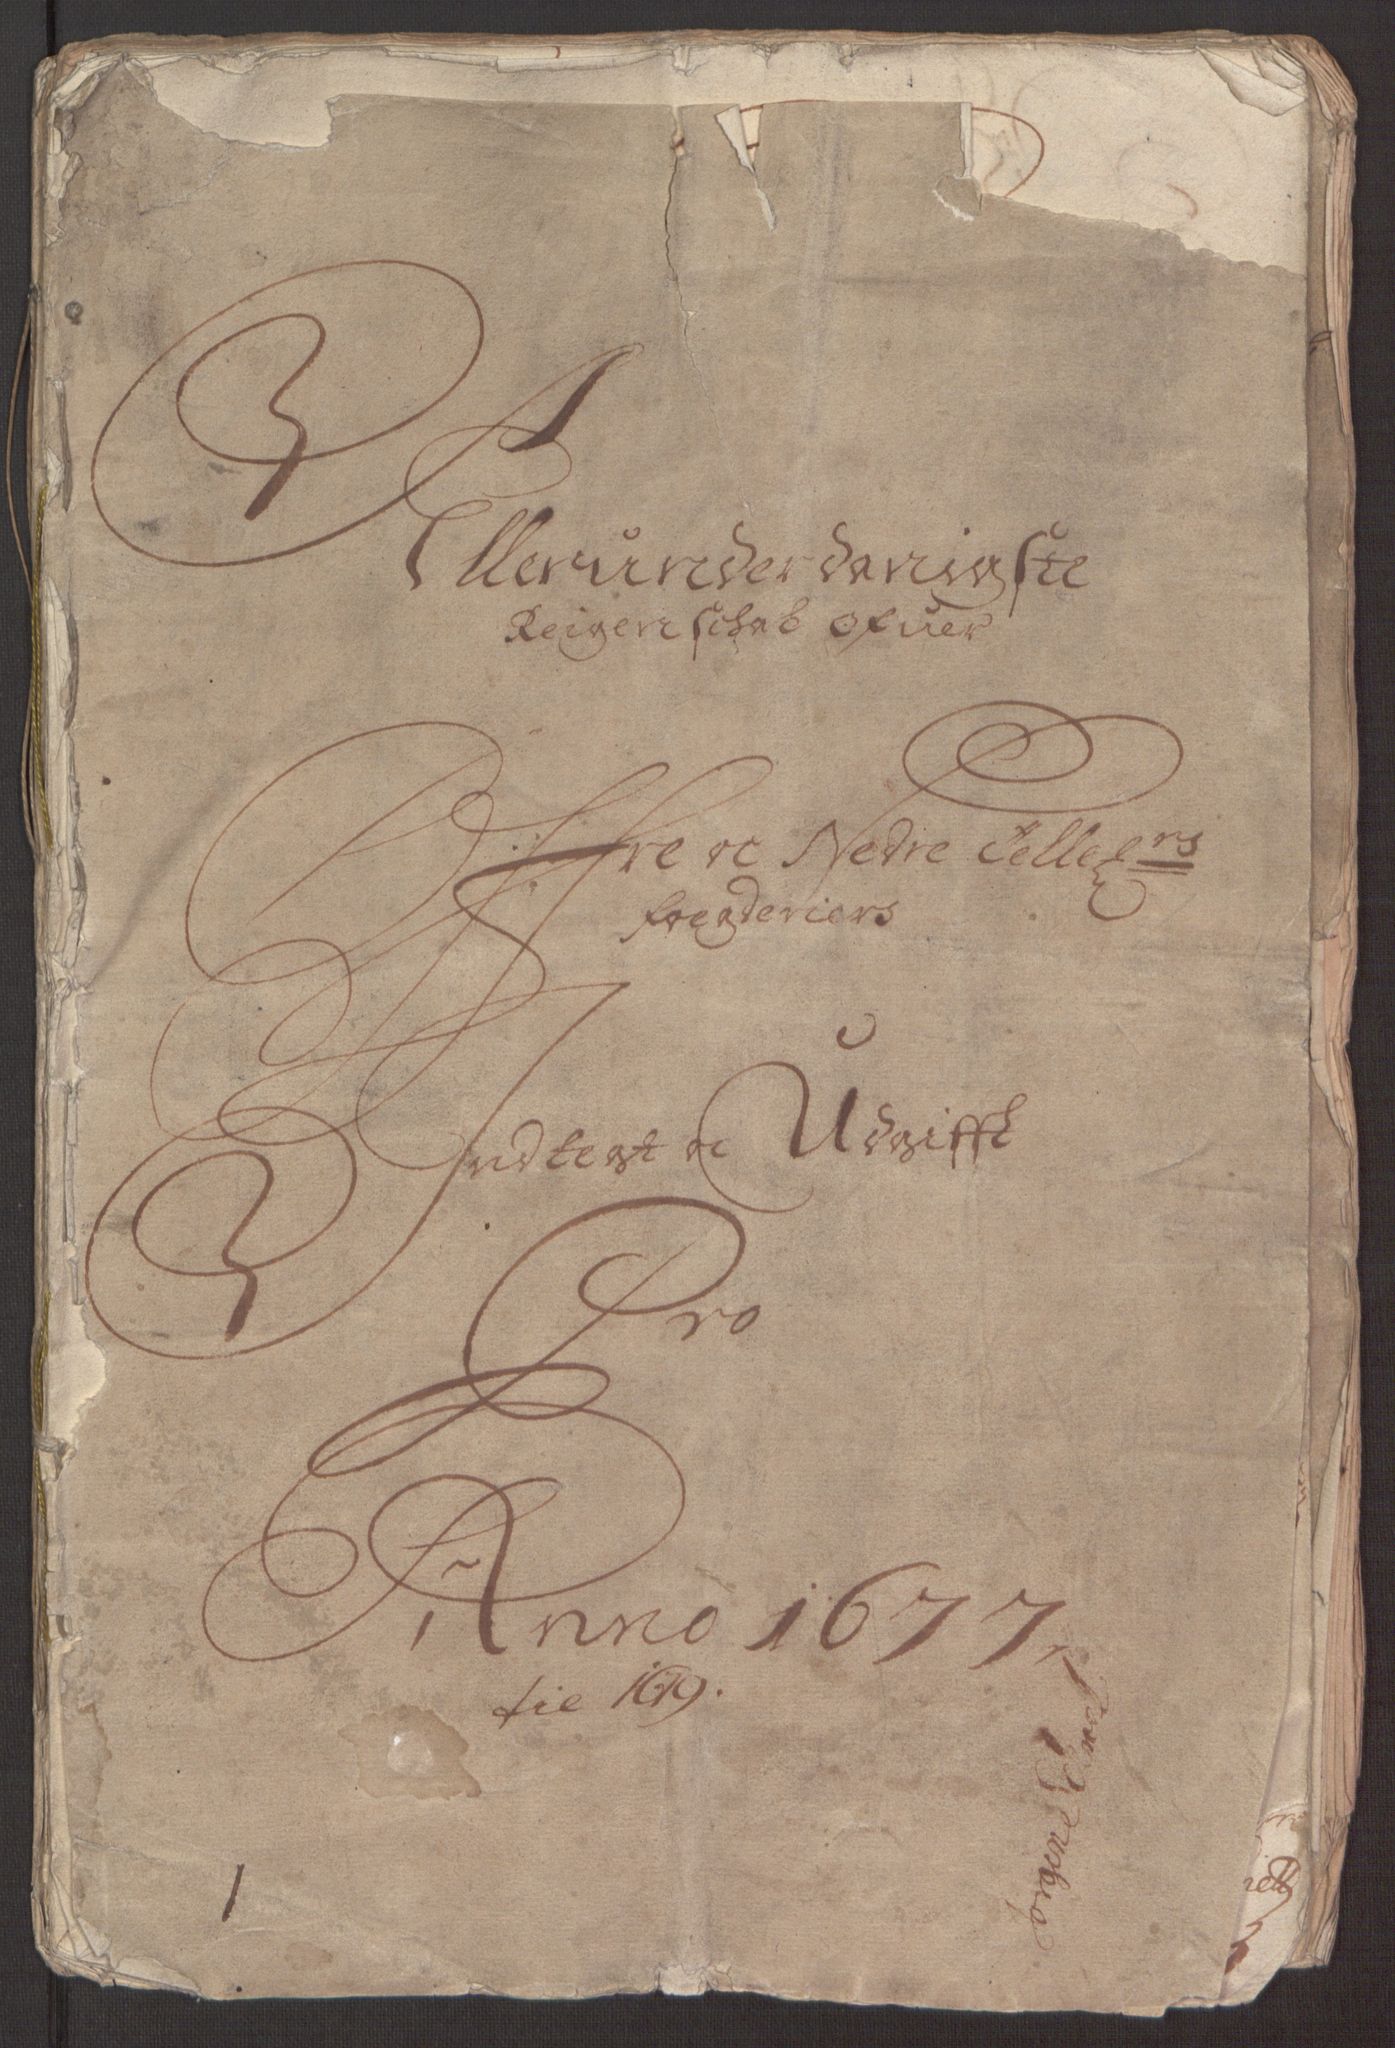 Allerunderdanigste
Reigenschab ofuer
Øfre oc Nedre Tellem̅rs
fougderiers
Indtegt oc Udgifft
Pro
Anno 1677
tie 1679.
1